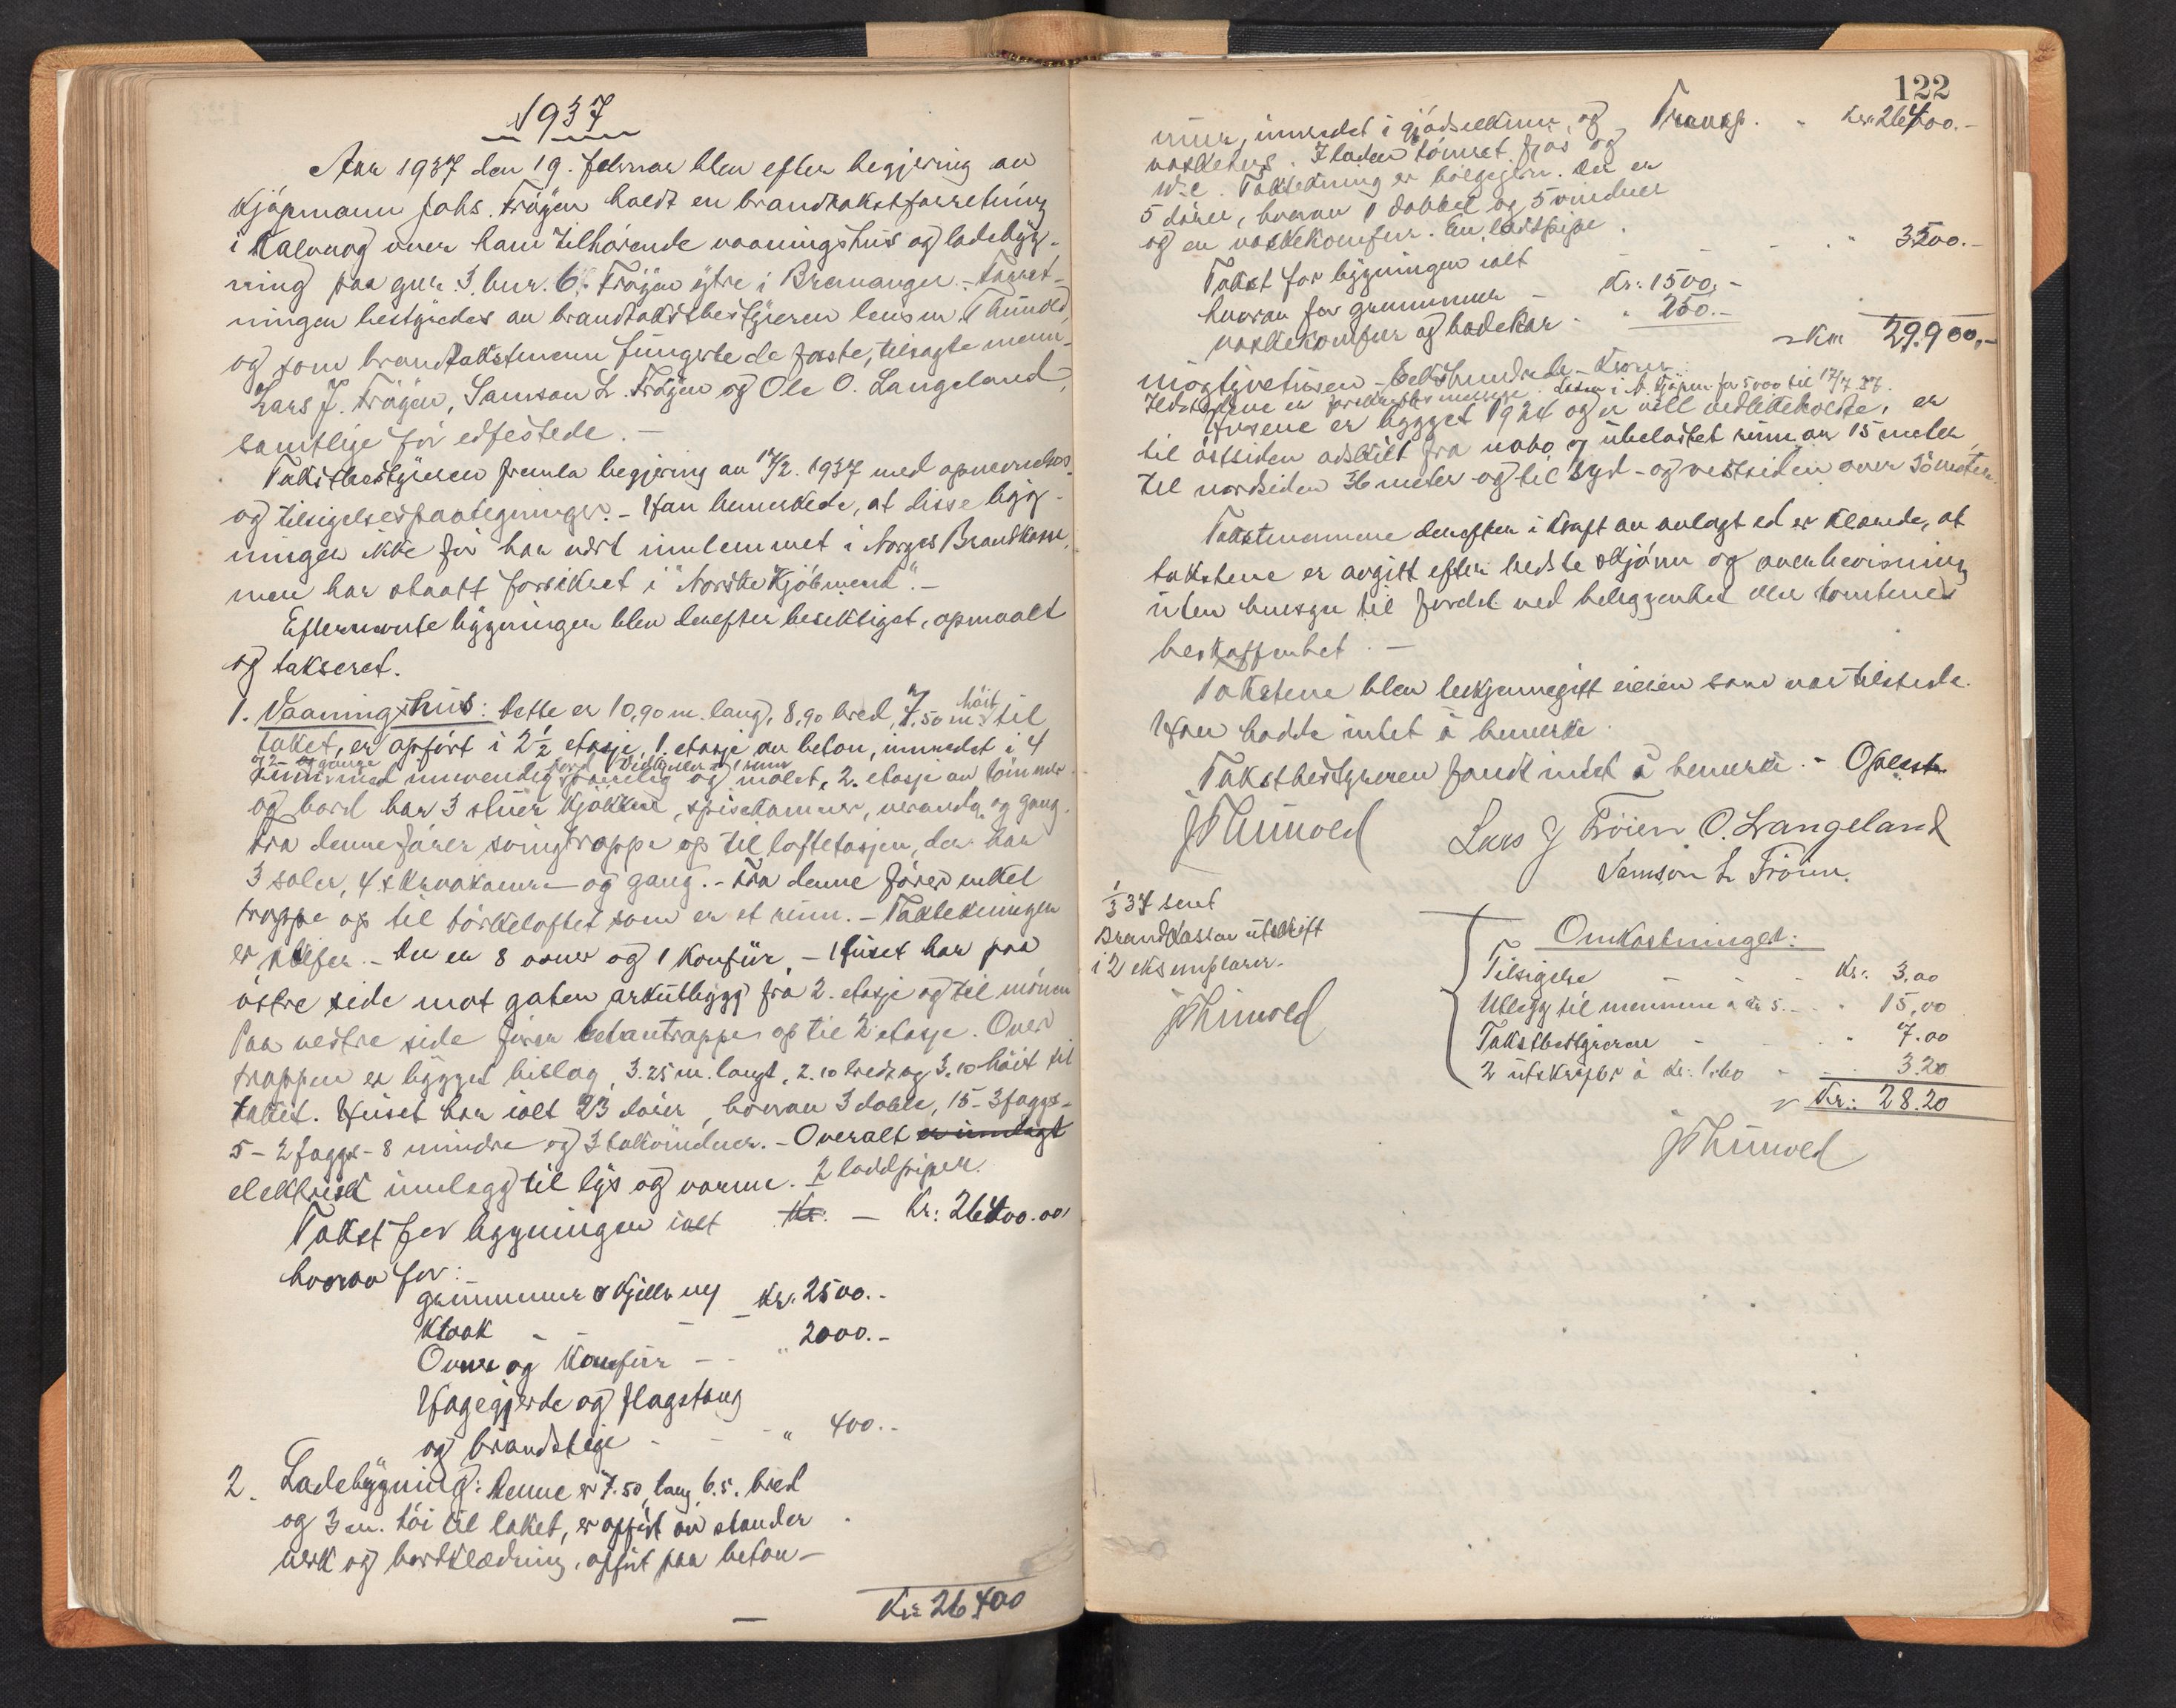 1937
Aar 1937 den 19. februar blev efter begjæring av
Kjøpmann Johs. Frøyen holdt en brandtakstforretning
i Kalvaag over ham tilhørende vaaningshus og ladebyg-
ning paa gnr. 3. bnr. 6. Frøyen ytre i Bremanger. - Forret-
ningen bestyredes av brandtakstbestyreren lensm. Thunold,
og som brandtakstmenn fungerte de faste, tilsagte menn,
Lars J. Frøyen, Samson L. Frøyen og Ole O. Langeland,
samtlige før edfestede. -
Takstbestyreren fremla begjæring av 17/2. 1937 med opnevnelses
og tilsigelsespaategninger. - Han bemerkede, at disse byg-
ninger ikke før har vært innlemmet i Norges Brandkasse,
men har staatt forsikret i "Norske Kjøbmend". -
Efternevnte bygninger blev derefter besiktiget, opmaalt
og taksert.
1. Vaaningshus: Dette er 10,90 m. lang, 8,90 bred, 7.50 m. høit til
taket, er opført i 2½ etasje, 1. etasje av beton, innredet i 4
rum med innvendig panelig og malet, 2. etasje av tømmer
og bord har 3 stuer kjøkken, spiskammer, veranda og gang.
Fra denne fører svingtrappe op til loftetasjen, der har
3 saler, 4 skraakamre og gang. - Fra denne fører enkel
trappe op til tørkeloftet som er et rum. - Taktekningen
er skifer. - Der er 8 ovner og 1 Komfür, - Huset har paa
østre side mot gaten arkutbygg fra 2. etasje og til mønen
Paa vestre side fører betontrappe op til 2 etasje. Over
trappen er bygget bislag, 3.25 m. langt, 2.10 bredt og 3.10 høit til
taket. Huset har ialt 23 dører, hvorav 3 doble, 15 - 3 faggs-
5 - 2 faggs - 8 mindre og 3 takvinduer. - Overalt er innlagt
elektrisk innlegg til lys og varme. 2 loddpiper.
Takst for bygningen ialt Kr. - Kr: 26400.00
hvorav for:
grunnmur & Kjeller Kr. 2500.-
Kloak
Ovner og Komfür - - " 2000.-
Hagegjerde og flagstang
og brandstige - - - " 400.-
2. Ladebygning: Denne er 7.50 lang, 6.5. bred
og 3 m. høi til taket, er opført av stander
verk og bordklædning, opført paa beton-
Kr 26400
122
mur, innredet i gjødselkum, og Transp. " Kr 26400.-
vaskehus. I laden tømret fjøs og
W.C. Taktekning er bølgejern. Der er
5 dører, hvorav 1 dobbel og 5 vinduer
og en vaskekomfur. En loddpipe.
Takst for bygningen ialt - - - " 3500.-
hvorav for grunnmur - Kr. 1500.-
vaskekomfur og badekar - " 250.-
Kr 29.900.-
niogtyvetusen - nihundrede - Kroner.
Ildstedene er forskriftsmessige.
Husene er bygget 1924 og er vell vedlikeholdte, er
til østsiden adskilt fra nabo og ubelastet rum av 15 meter,
til nordsiden 36 meter og til syd- og vestsiden over 50 meter.
Takstmennene derefter i kraft av avlagt ed erklærede, at
takstene er avgitt efter bedste skjønn og overbevisning
uten hensyn til fordel ved beliggenhet eller tomtenes
beskaffenhet. -
Takstene blev bekjennegitt eieren som var tilstede.
Han hadde intet å bemerke.
Takstbestyreren fandt intet å bemerke. - Oplest.
JThunold Lars J Frøien O. Langeland
Samson L Frøien.
1/3 37 sent
Brandkassen utskrift
i 2 eksemplarer.
JThunold
Omkostninger:
Tilsigelse - - - Kr. 3.00
Utlegg til mennene à kr 5. - " 15,00
Takstbestyreren - " 7.00
2 utskrifter à Kr. 1.60 - 3.20
Kr.: 28.20
JThunold